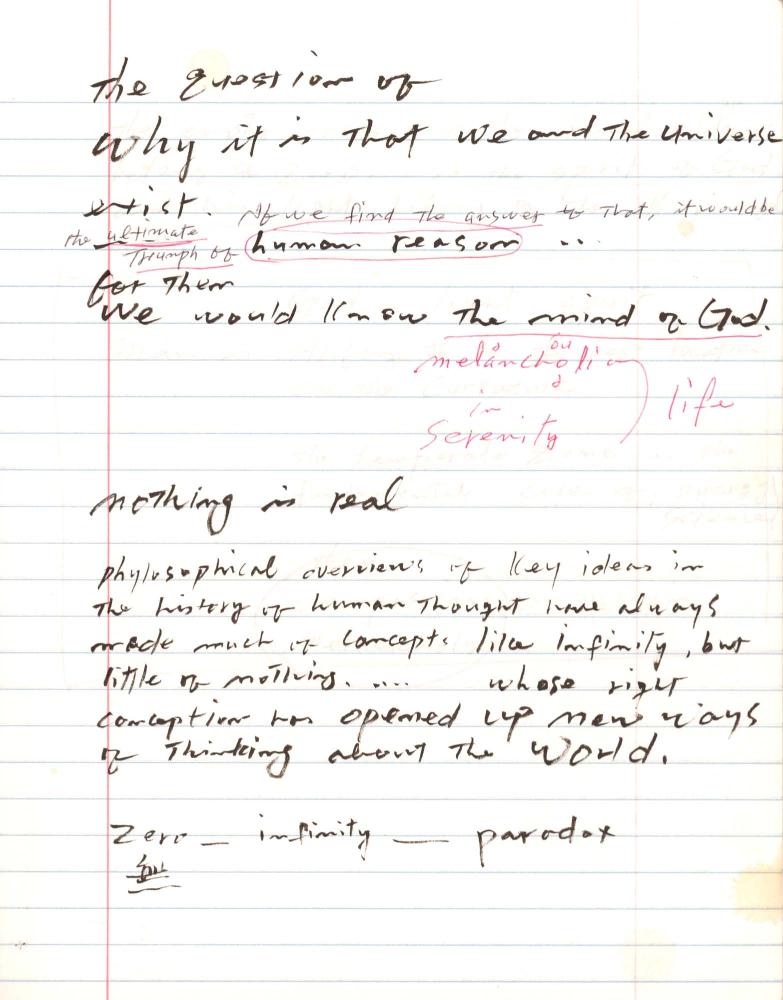 The question of
Why it is that we and the Universe
exist. If we find the answer to that, it would be
the ultimate
Triumph of human reason ..
for Then
We would know the mind of God.
melancholia
in
Serenity
life
nothing is real
phylosophical overviews of key ideas in
The history of human Thought have always
made much of concepts like infinity, but
little of nothing. .... whose right
conception has opened up new ways
of Thinking about The World.
Zero — infinity — paradox
無